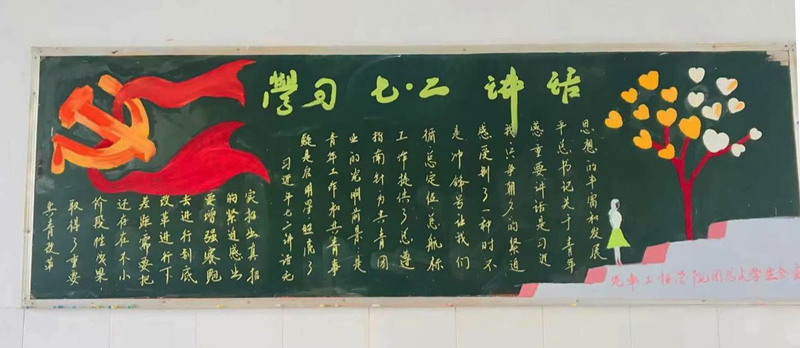 學习 七·二 讲话
共青改革
取得了重要
阶段性成果
还存在不小
差距需要把
改革进行下
去进行到底
要增强赛跑
的紧迫感出
实招出真招
习近平七二讲话无
疑是启明星照亮了
青年工作和共青事
业的光明前景是
指南针为共青团
工作提供了总遵
循总定位总航标
是冲锋号让我们
感受到了一种时不
我只争朝夕的紧迫
感重要讲话是习近
平总书记关于青年
思想的丰富和发展